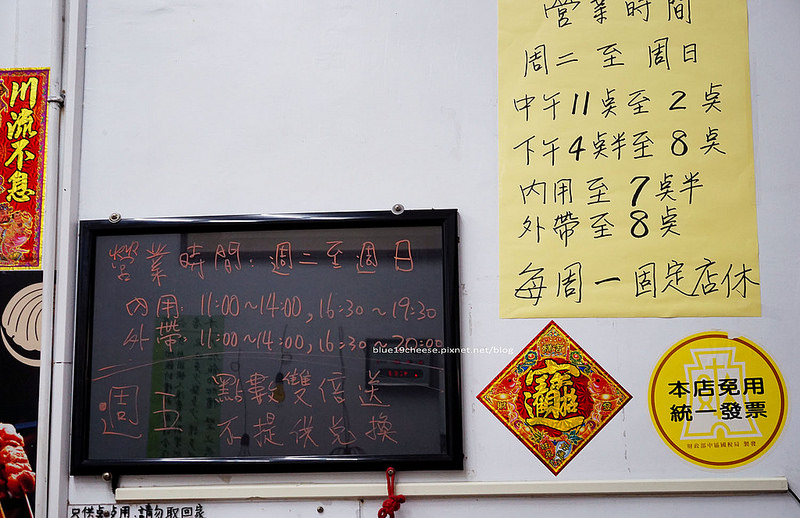 川流不息
營業時間：週二至週日
內用：11:00～14:00, 16:30～19:30
外帶：11:00～14:00, 16:30～20:00
週五 點數雙倍送
不提供兌換
blue19cheese.pixnet.net/blog
營業時間
周二至周日
中午11点至2点
下午4点半至8点
內用至7点半
外帶至8点
每周一固定店休
本店免用
統一發票
財政部中區國稅局 製發
只供桌上用,請勿取回家